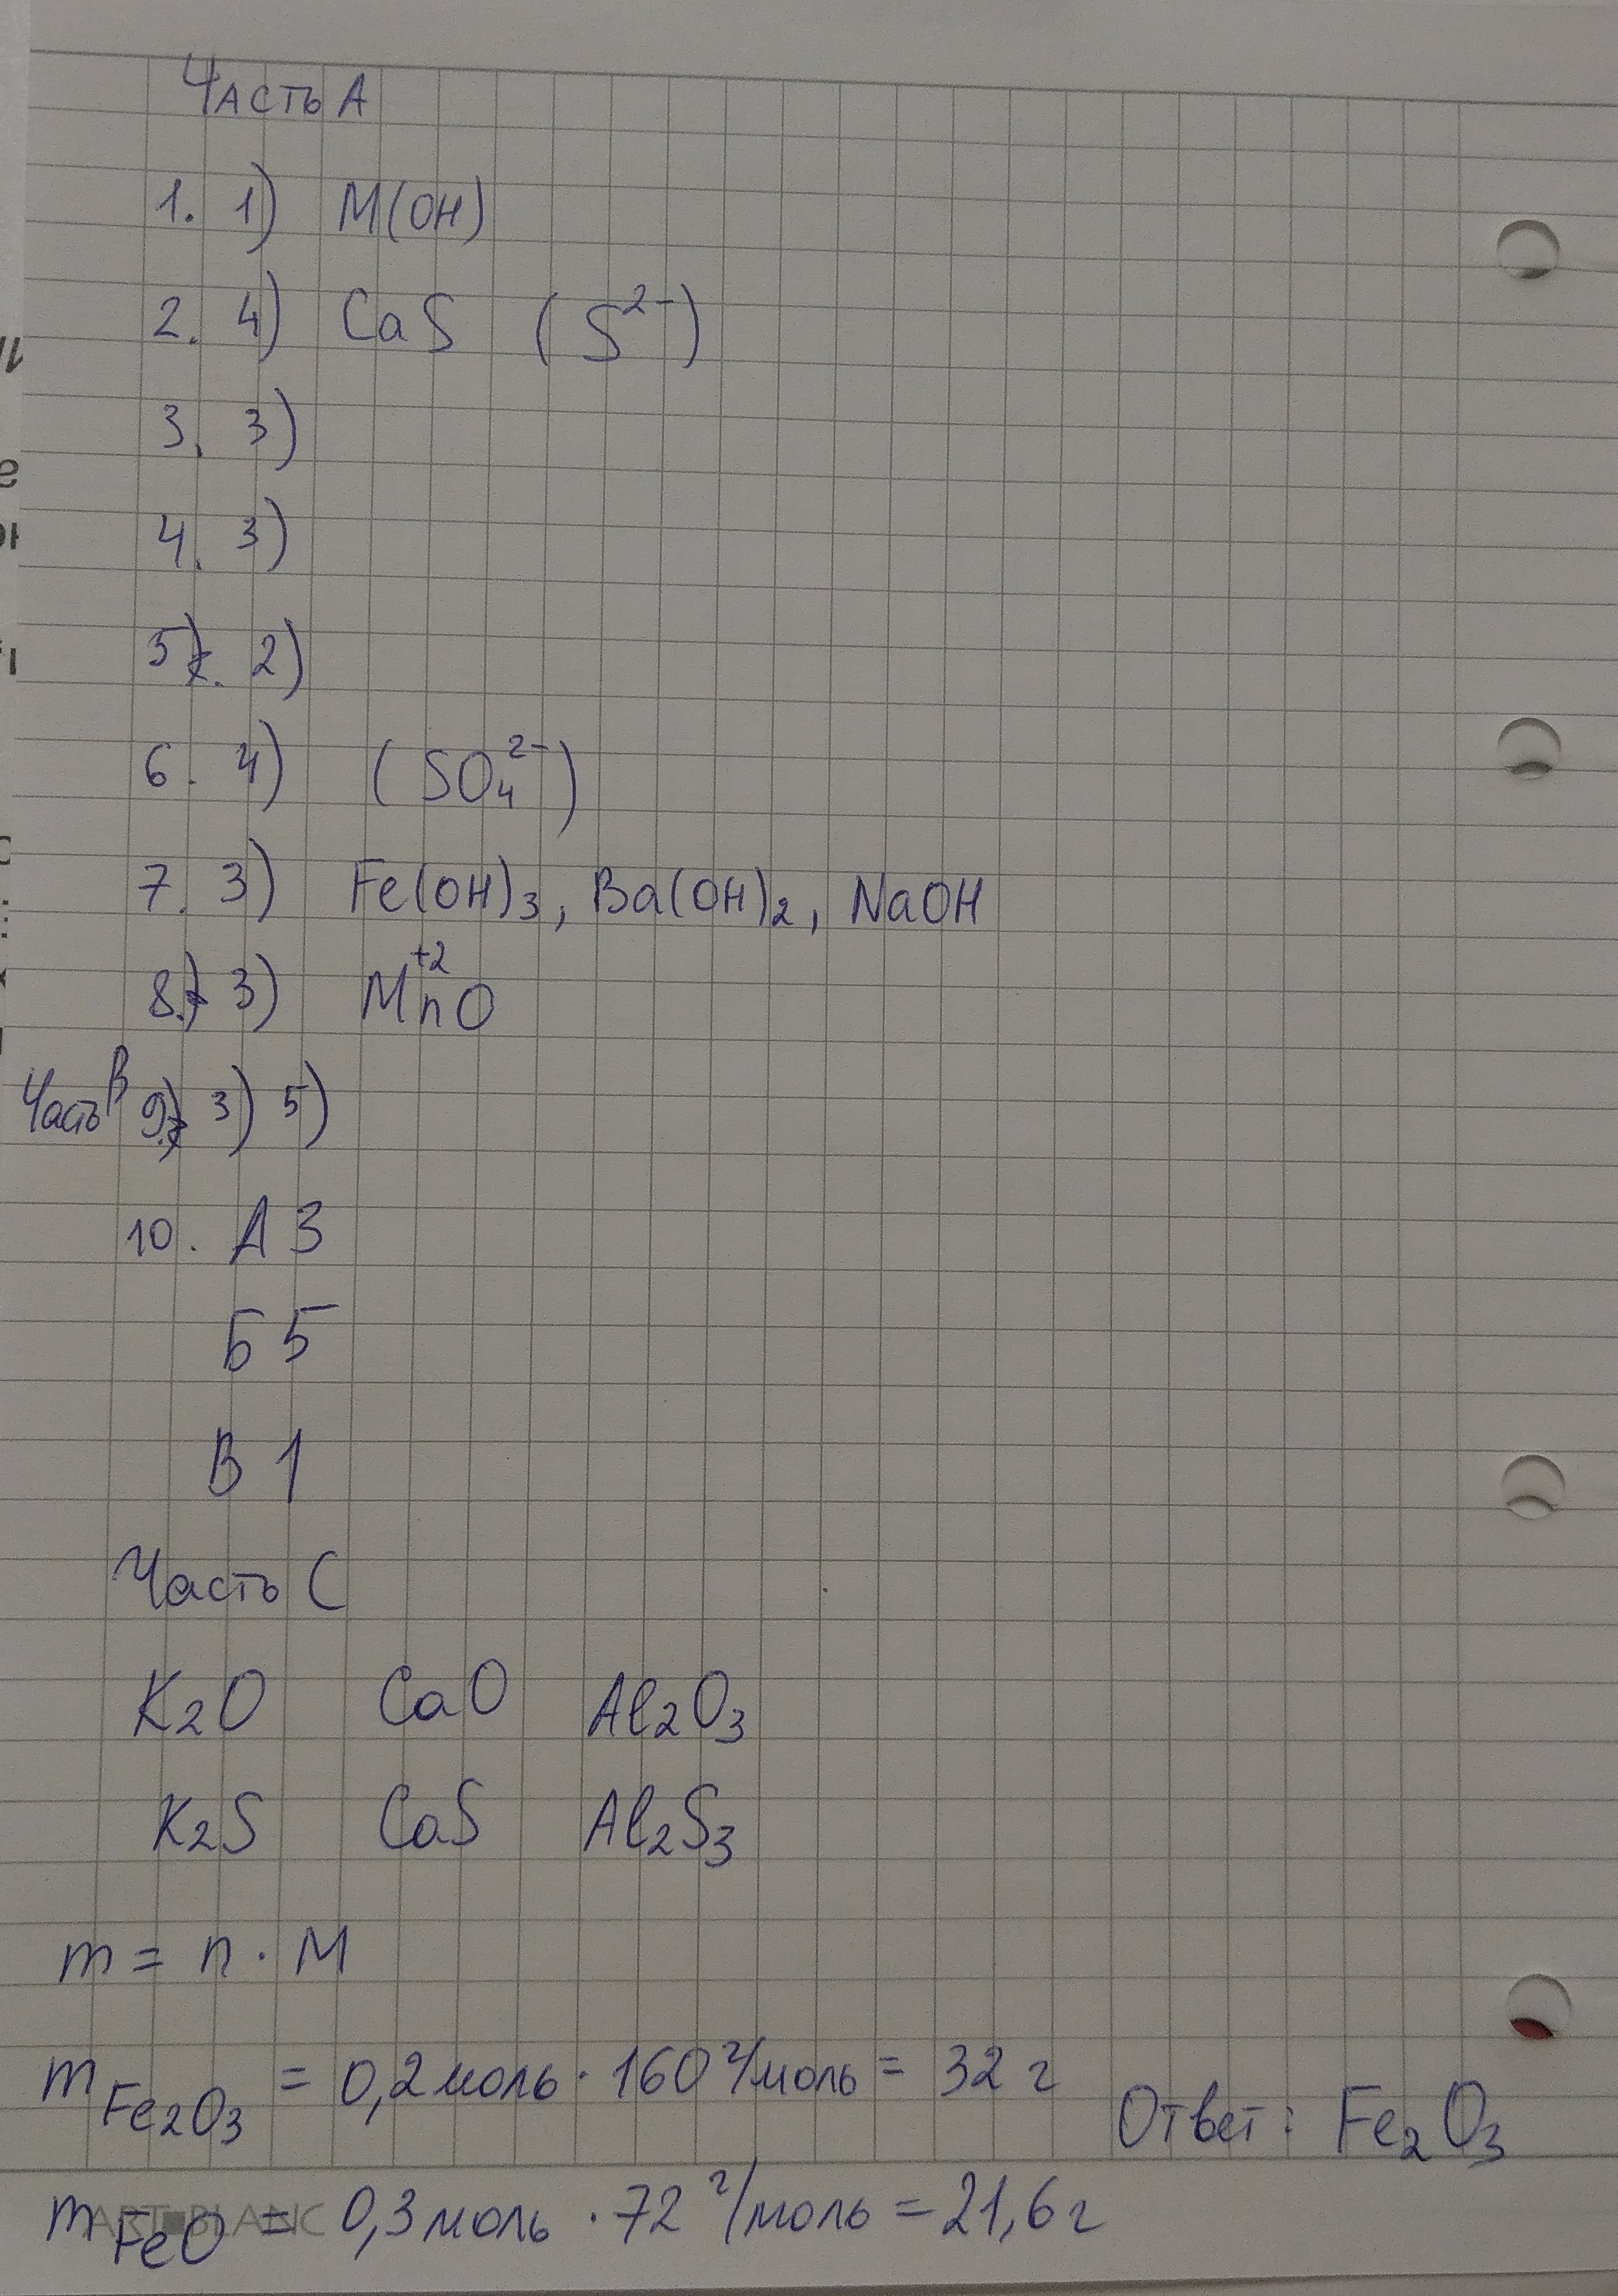 Часть А
1. 1) М(ОН)
2. 4) CaS (S²⁻)
3. 3)
4. 3)
5. 2)
6. 4) (SO₄²⁻)
7. 3) Fe(OH)₃, Ba(OH)₂, NaOH
8. 3) Mn⁺²O
Часть В 9. 3) 5)
10. А 3
Б 5
В 1
Часть С
K₂O CaO Al₂O₃
K₂S CaS Al₂S₃
m = n · M
m Fe₂O₃ = 0,2 моль · 160 г/моль = 32 г Ответ: Fe₂O₃
m FeO = 0,3 моль · 72 г/моль = 21,6 г
ART BLANC